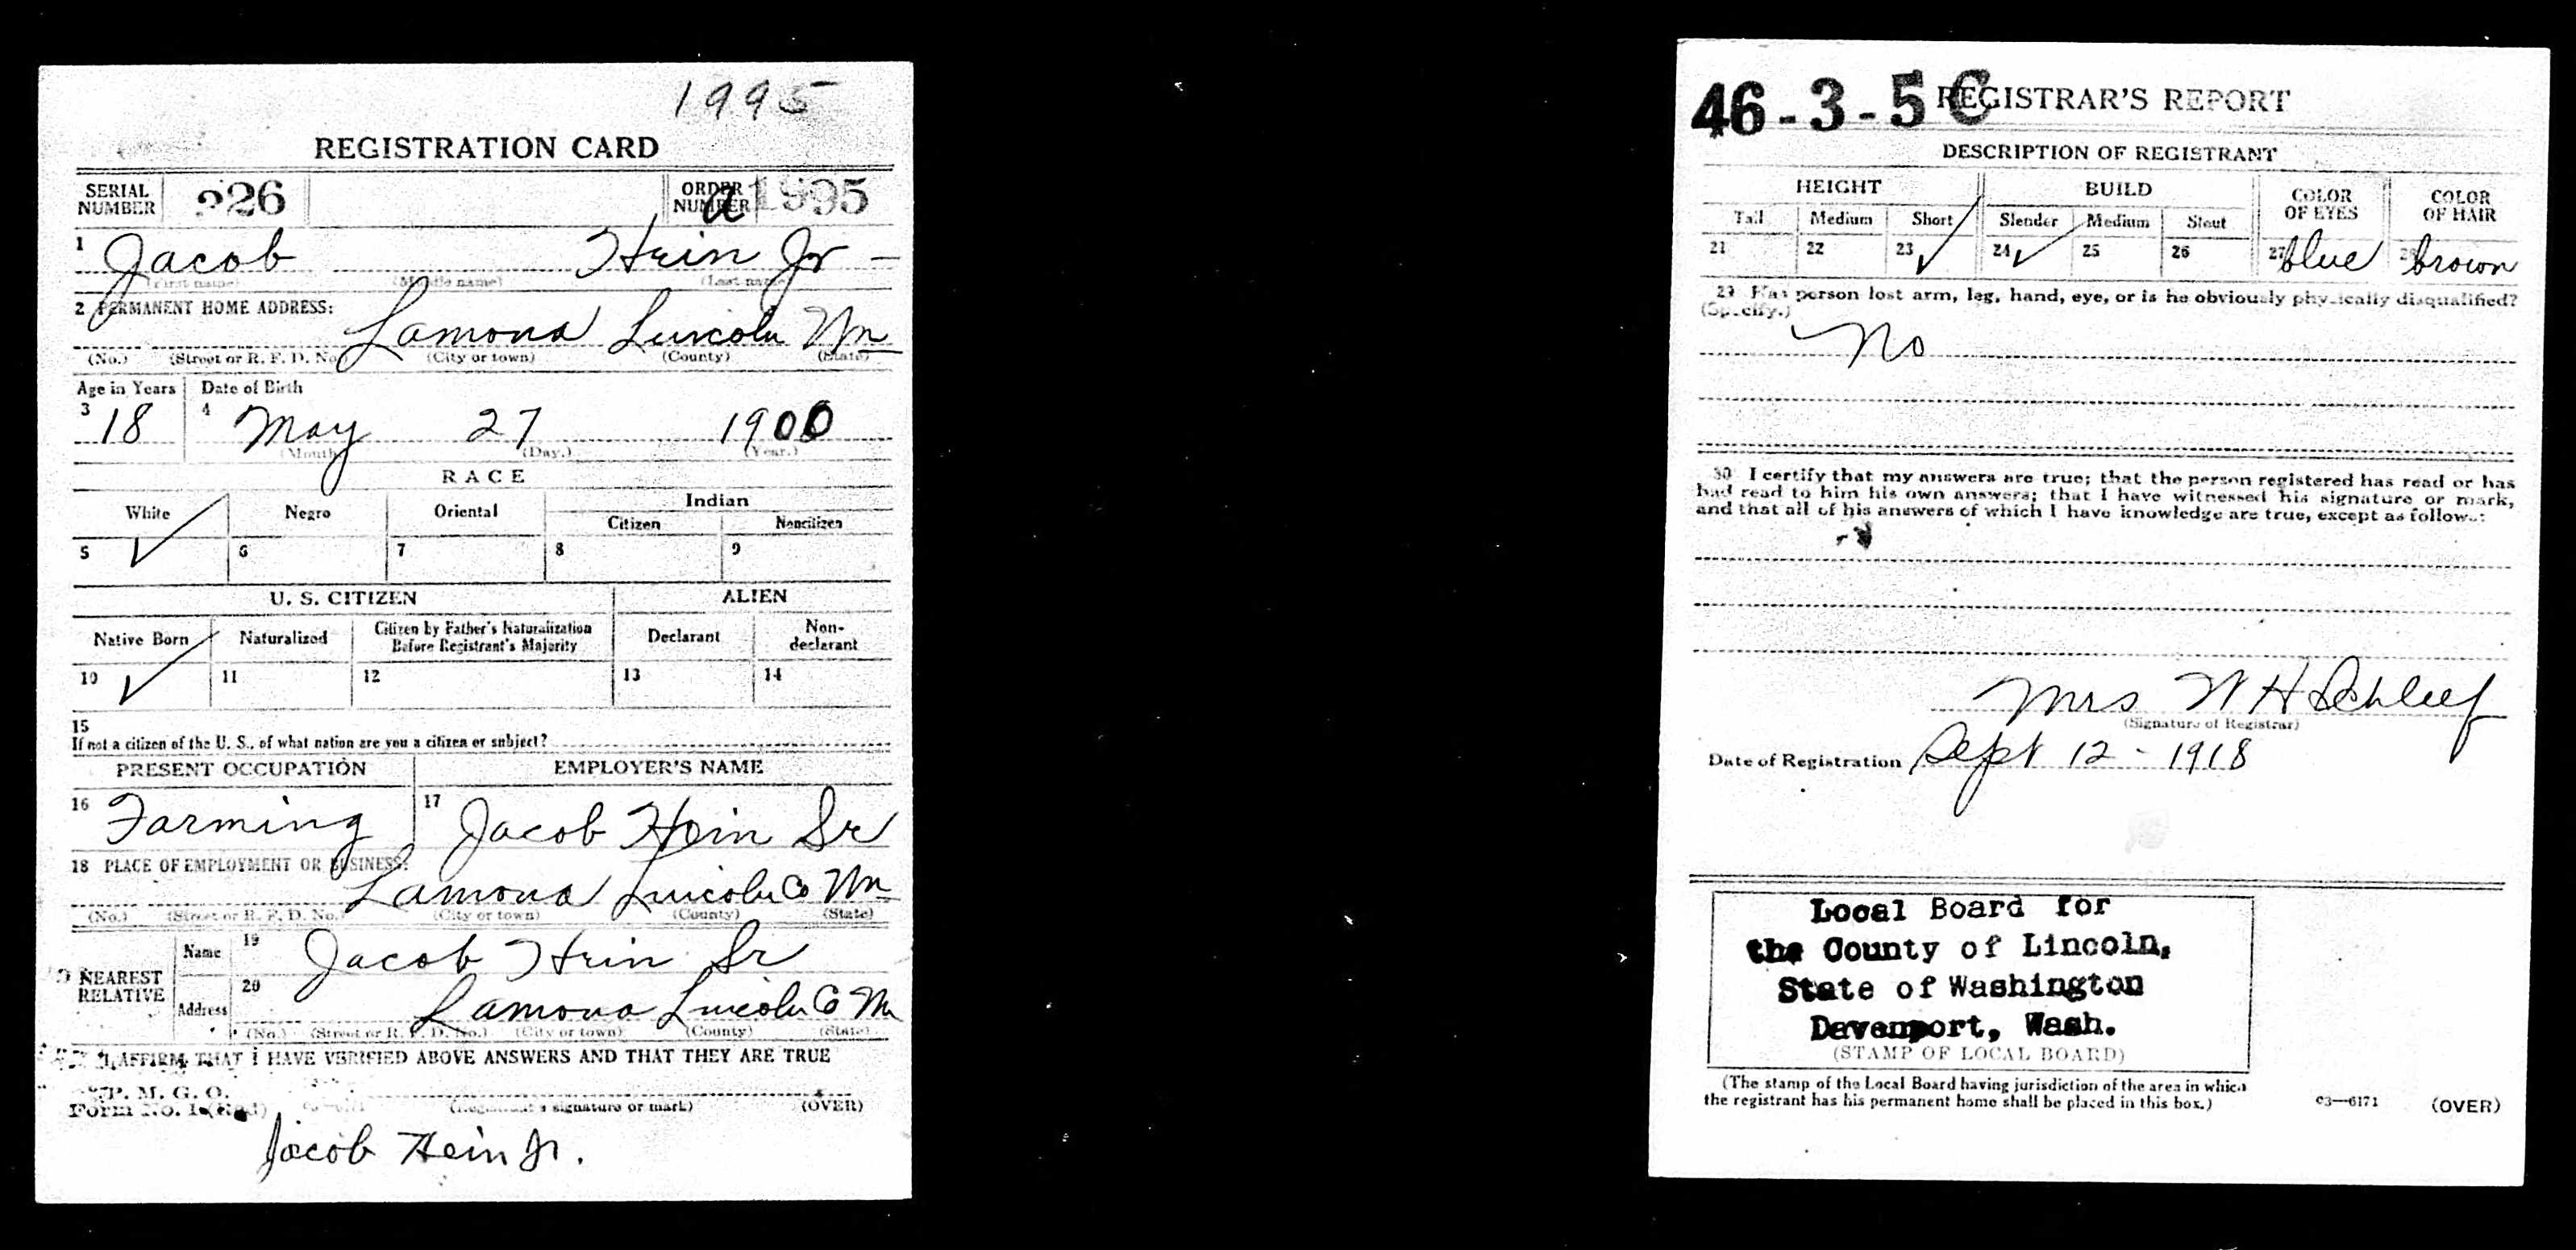 1995
REGISTRATION CARD
SERIAL NUMBER 226 ORDER NUMBER a 1995
1 Jacob Hein Jr -
(First name) (Middle name) (Last name)
2 PERMANENT HOME ADDRESS:
Lamona Lincoln Wn
(No.) (Street or R. F. D. No.) (City or town) (County) (State)
Age in Years Date of Birth
3 18 4 May 27 1900
(Month) (Day.) (Year.)
RACE
White Negro Oriental Indian
Citizen Noncitizen
5 ✓ 6 7 8 9
U. S. CITIZEN ALIEN
Native Born Naturalized Citizen by Father's Naturalization Before Registrant's Majority Declarant Non-declarant
10 ✓ 11 12 13 14
15
If not a citizen of the U. S., of what nation are you a citizen or subject?
PRESENT OCCUPATION EMPLOYER'S NAME
16 Farming 17 Jacob Hein Sr
18 PLACE OF EMPLOYMENT OR BUSINESS:
Lamona Lincoln Co Wn
(No.) (Street or R. F. D. No.) (City or town) (County) (State)
NEAREST RELATIVE Name 19 Jacob Hein Sr
Address 20 Lamona Lincoln Co Wn
(No.) (Street or R. F. D. No.) (City or town) (County) (State)
I AFFIRM THAT I HAVE VERIFIED ABOVE ANSWERS AND THAT THEY ARE TRUE
P. M. G. O.
Form No. 1 (Red) (Registrant's signature or mark) (OVER)
Jacob Hein Jr.
46-3-5 C REGISTRAR'S REPORT
DESCRIPTION OF REGISTRANT
HEIGHT BUILD COLOR OF EYES COLOR OF HAIR
Tall Medium Short Slender Medium Stout
21 22 23 ✓ 24 ✓ 25 26 27 blue 28 brown
29 Has person lost arm, leg, hand, eye, or is he obviously physically disqualified?
(Specify.)
No
30 I certify that my answers are true; that the person registered has read or has
had read to him his own answers; that I have witnessed his signature or mark,
and that all of his answers of which I have knowledge are true, except as follows:
Mrs W H Schleef
(Signature of Registrar)
Date of Registration Sept 12 - 1918
Local Board for
the County of Lincoln,
State of Washington
Davenport, Wash.
(STAMP OF LOCAL BOARD)
(The stamp of the Local Board having jurisdiction of the area in which
the registrant has his permanent home shall be placed in this box.)
c3—6171 (OVER)